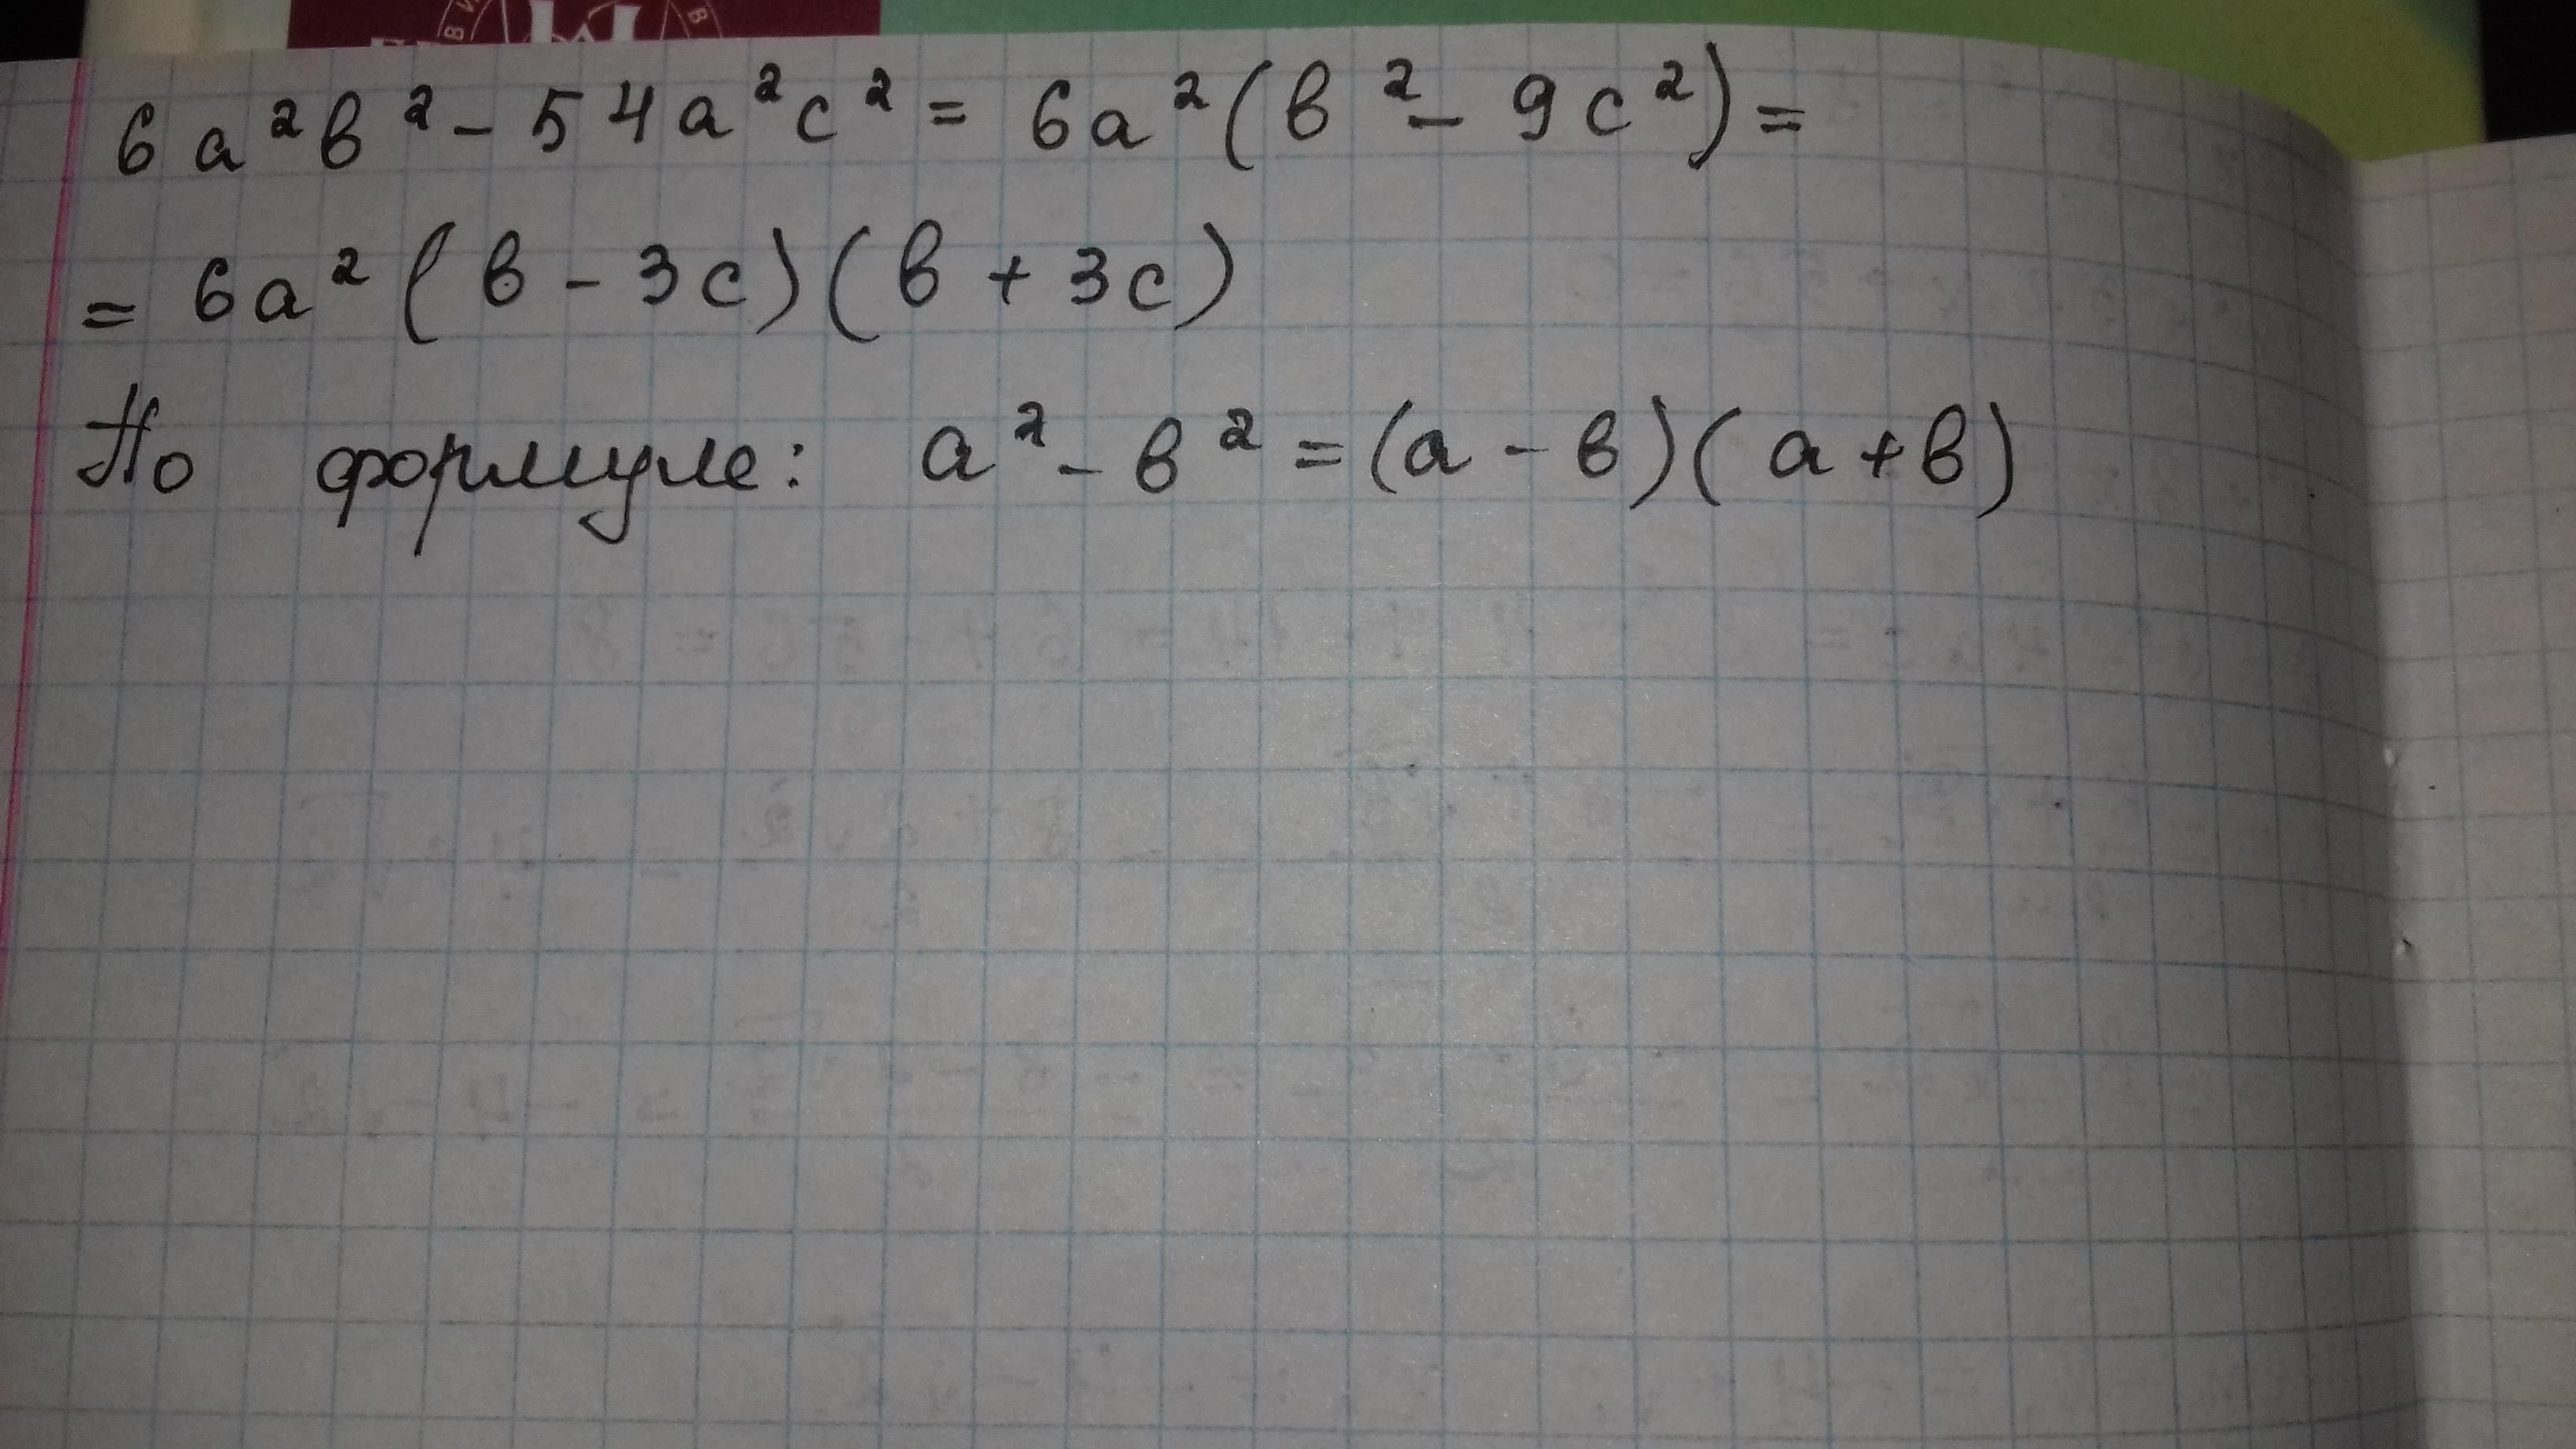 6a²в² - 54a²c² = 6a²(в² - 9c²) =
= 6a²(в - 3c)(в + 3c)
По формуле: a² - в² = (a - в)(a + в)